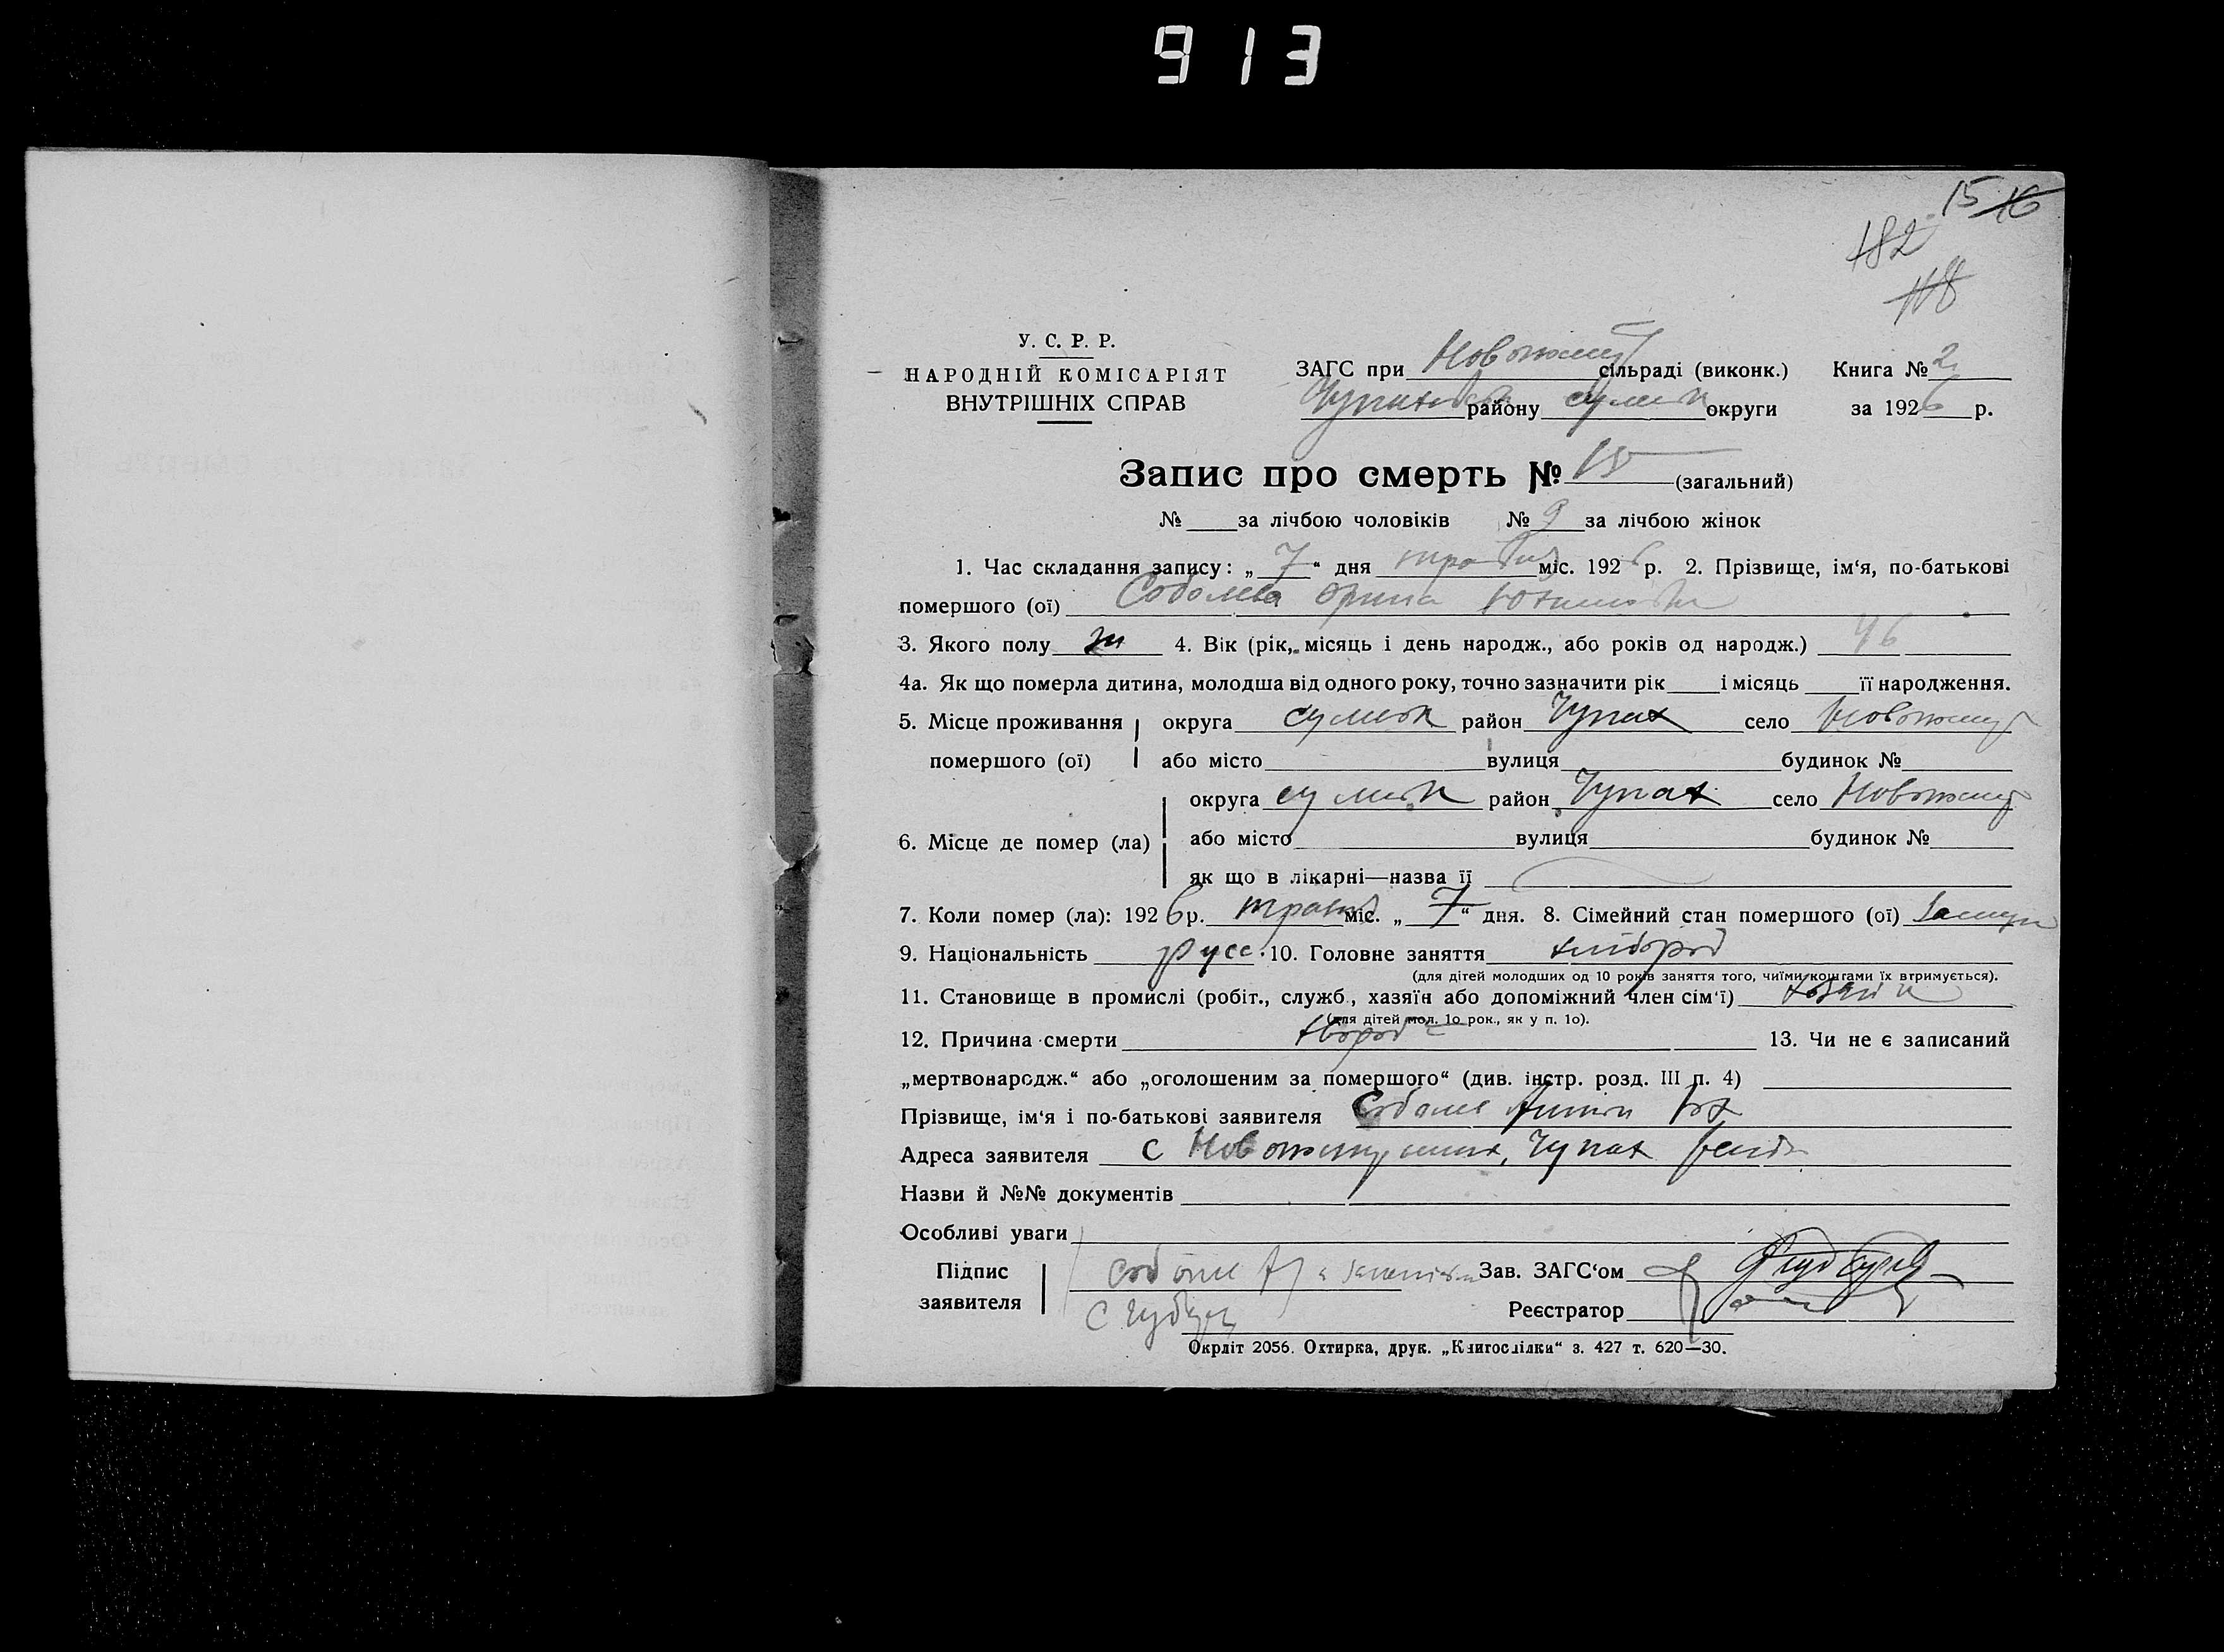 913
15 16
182
118
У. С. Р. Р.
НАРОДНІЙ КОМІСАРІЯТ
ВНУТРІШНІХ СПРАВ
ЗАГС при сільраді (виконк.) Книга № 2
району сумськ округи за 1926 р.
Запис про смерть № 15 (загальний)
№ за лічбою чоловіків № 9 за лічбою жінок
1. Час складання запису: „ 7 “ дня травня міс. 1926 р. 2. Прізвище, ім‘я, по-батькові
помершого (ої) Соболева Орина
3. Якого полу ж 4. Вік (рік, місяць і день народж., або років од народж.) 46
4а. Як що померла дитина, молодша від одного року, точно зазначити рік і місяць її народження.
5. Місце проживання округа сумськ район Чупах село
помершого (ої) або місто вулиця будинок №
округа сумськ район Чупах село
6. Місце де помер (ла) або місто вулиця будинок №
як що в лікарні—назва її
7. Коли помер (ла): 1926 р. травня міс. „ 7 “ дня. 8. Сімейний стан помершого (ої)
9. Національність русс. 10. Головне заняття хлібороб
(для дітей молодших од 10 років заняття того, чиїми коштами їх втримується).
11. Становище в промислі (робіт., служб., хазяїн або допоміжний член сім‘ї) хазяїн
(для дітей мол. 1о рок., як у п. 1о).
12. Причина смерти 13. Чи не є записаний
„мертвонародж.“ або „оголошеним за помершого“ (див. інстр. розд. III п. 4)
Прізвище, ім‘я і по-батькові заявителя
Адреса заявителя с Чупах
Назви й №№ документів
Особливі уваги
Підпис Зав. ЗАГС‘ом
заявителя Реєстратор
Окрліт 2056. Охтирка, друк. „Книгоспілки“ з. 427 т. 620—30.